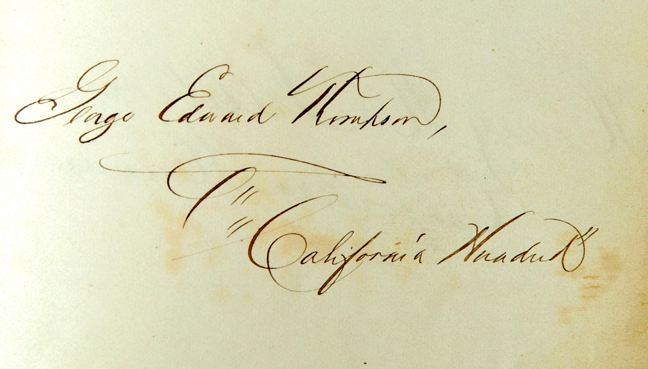 George Edward Thompson,
"California Hundred"